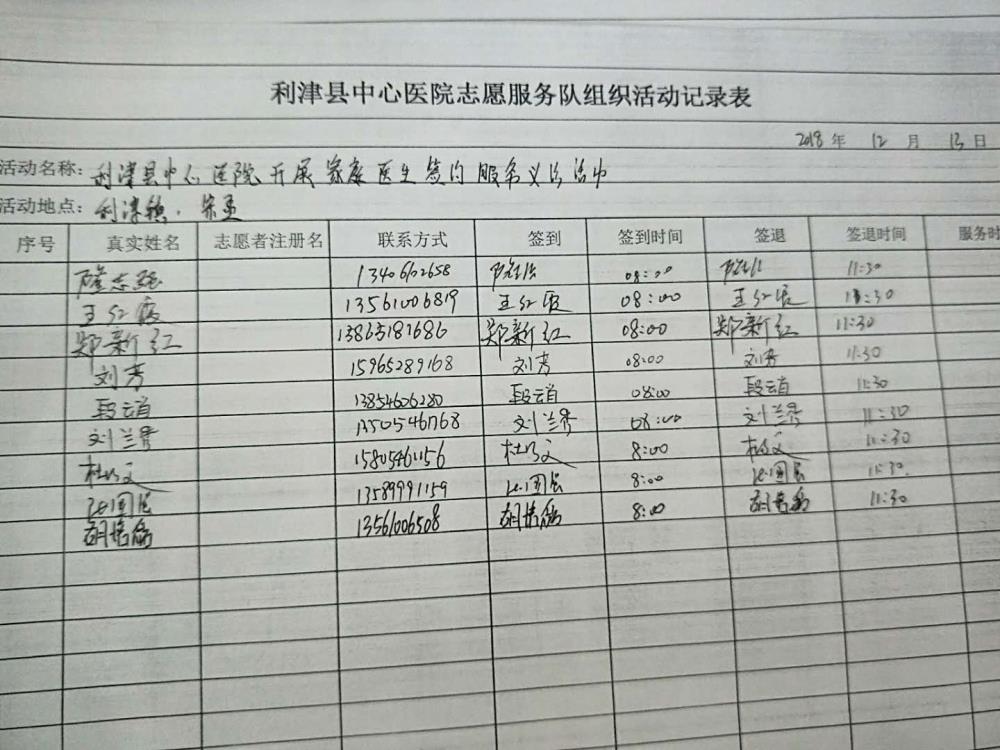 利津县中心医院志愿服务队组织活动记录表
2018 年 12 月 13 日
活动名称：利津县中心医院开展家庭医生签约服务义诊活动
活动地点：利津镇、
序号 真实姓名 志愿者注册名 联系方式 签到 签到时间 签退 签退时间 服务时
隆志强 13406102658 08:00 11:30
王红霞 13561006819 王红霞 08:00 王红霞 11:30
郑新红 13865187686 郑新红 08:00 郑新红 11:30
刘芳 15965289168 刘芳 08:00 刘芳 11:30
段云首 13854606280 段云首 08:00 段云首 11:30
刘兰 刘兰 08:00 刘兰 11:30
杜 15805461156 杜 8:00 11:30
13589991159 8:00 11:30
胡 13561006508 胡 8:00 胡 11:30